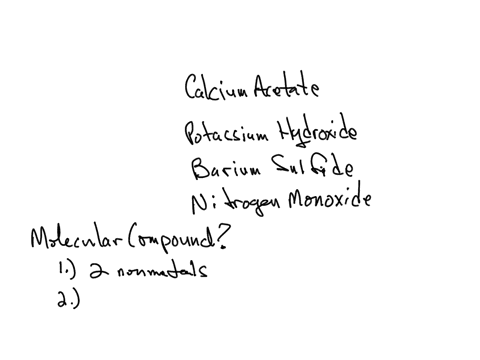 Calcium Acetate
Potassium Hydroxide
Barium Sulfide
Nitrogen Monoxide
Molecular Compound?
1.) 2 nonmetals
2.)